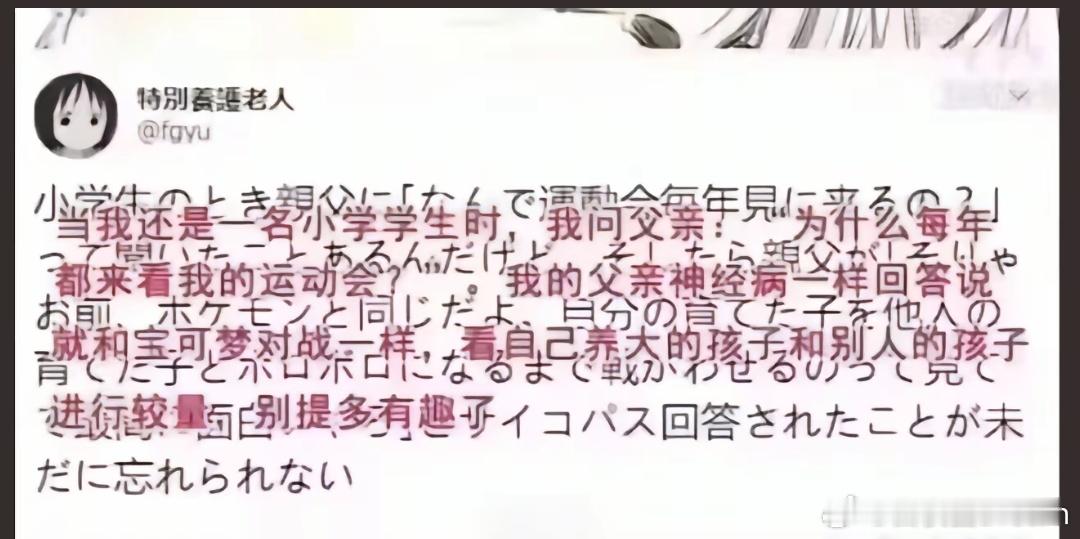 特別養護老人
@fgyu
小学生のとき親父に「なんで運動会毎年見に来るの？」
当我还是一名小学学生时，我问父亲：“为什么每年
って聞いたことあるんだけど、そしたら親父が「そりゃ
都来看我的运动会？”。我的父亲神经病一样回答说
お前、ポケモンと同じだよ、自分の育てた子を他人の
就和宝可梦对战一样，看自己养大的孩子和别人的孩子
育てた子とボロボロになるまで戦かわせるのって見て
进行较量，别提多有趣了
サイコパス回答されたことが未
だに忘れられない